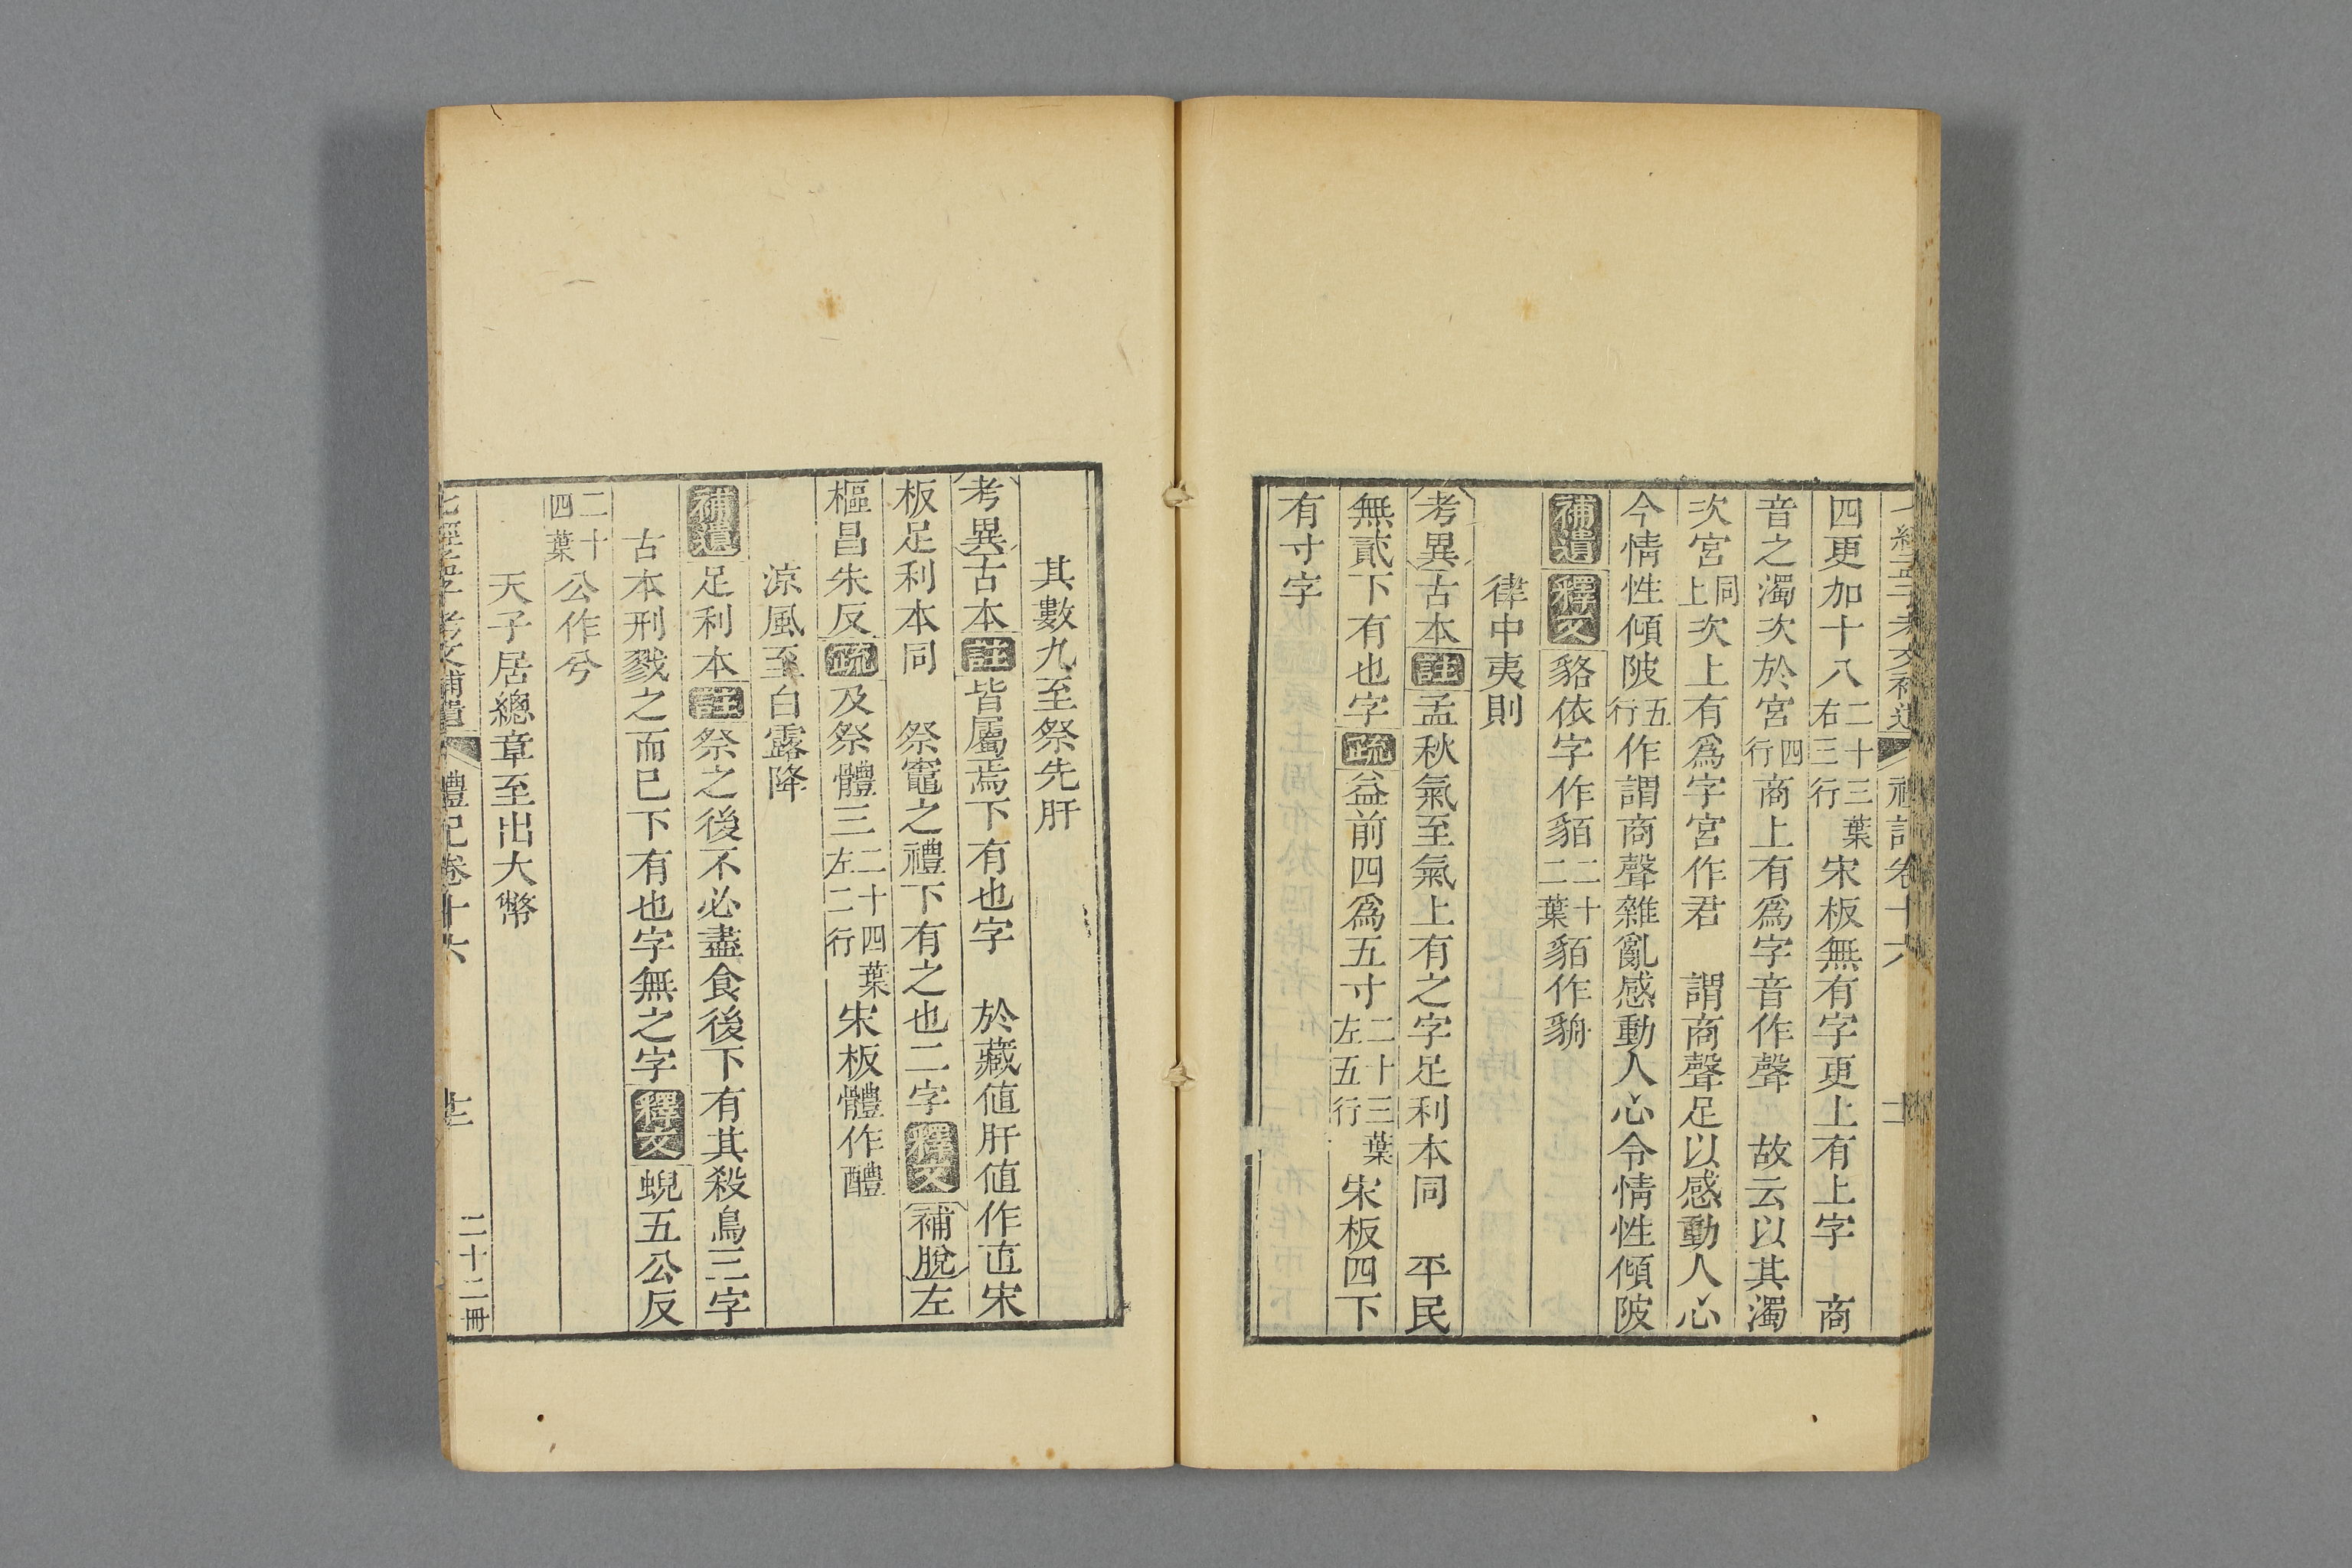 四更加十八二十三葉右三行宋板無有字更上有上字　商
音之濁次於宮四行商上有爲字音作聲　故云以其濁
次宮同上次上有爲字宮作君　謂商聲足以感動人心
今情性傾陂五行作謂商聲雜亂感動人心令情性傾陂
補遺釋文貉依字作貊二十二葉貊作貈
律中夷則
考異古本註孟秋氣至氣上有之字足利本同　平民
無貳下有也字疏益前四爲五寸二十三葉左五行宋板四下
有寸字
其數九至祭先肝
考異古本註皆屬焉下有也字　於藏値肝値作直宋
板足利本同　祭竈之禮下有之也二字釋文補脫左
樞昌朱反疏及祭體三二十四葉左二行宋板體作醴
涼風至白露降
補遺足利本註祭之後不必盡食後下有其殺鳥三字
古本刑戮之而已下有也字無之字釋文蜺五公反
二十四葉公作兮
天子居總章至出大幣
七經孟子考文補遺　禮記卷十六　二十二冊